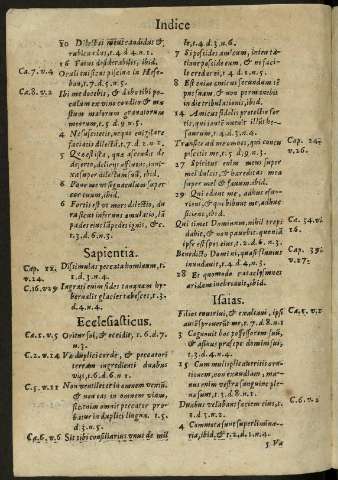 Indice
10 Dilectus meus candidus &
rubicundus, t.4.d.4.n.1.
16 Totus desiderabilis, ibid.
Ca.7.v.4 Oculi tui sicut piscina in Hese-
bon, t.7.d.5.n.5.
Ca.8.v.2 Ibi me docebis, & dabo tibi po-
culum ex vino condito & mu-
stum malorum granatorum
meorum, t.5.d.9.n.5.
4 Ne suscitetis, neque evigilare
faciatis dilectā, t.7.d.2.n.2.
5 Quæ est ista, quæ ascendit de
deserto, delicijs affluens, inni-
xa super dilectum suū, ibid.
6 Pone me vt signaculum super
cor tuum, ibid.
6 Fortis est vt mors dilectio, du-
ra sicut infernus æmulatio, lā
pades eius lāpades ignis, & c.
t.3.d.6.n.3.
Sapientia.
Cap. 11.
v.24.
Dissimulas peccata hominum, t.
1.d.3.n.4.
C.16.v.29 Ingrati enim fides tanquam hy-
bernalis glacies tabescet, t.3.d.
4.n.4.
Ecclesiasticus.
Ca.1.v.5 Oritur sol, & occidit, t.6.d.7.
n.3.
C.2.v.14 Væ duplici corde, & peccatori
terram ingredienti duabus
vijs, t.6.d.6.n.1.
C.5.v.11 Non ventiles te in omnem ventū,
& non eas in omnem viam,
sic enim omnis peccator pro-
batur in duplici lingua. t.5.
d.3.n.5.
Ca.6.v.6 Sit tibi consiliarius vnus de mil
le, t.4.d.3.n.6.
7 Si possides amicum, in tenta-
tione posside eum, & ne faci-
le credas ei, t.4.d.1.n.5.
8 Est enim amicus secundum tē
pus suum, & non permanebit
in die tribulationis, ibid.
14 Amicus fidelis protectio for-
tis, qui inuenit illum inuenit the-
saurum, t.4.d.3.n.4.
Cap. 24.
v.26.
Transite ad me omnes, qui concu
piscitis me, t.5.d.9.n.3.
27 Spiritus enim meus super
mel dulcis, & hæreditas mea
super mel & fauum, ibid.
29 Qui edunt me, adhuc esu-
rient, & qui bibunt me, adhuc
sitient, ibid.
Ca. 34.v.
16.
Qui timet Dominum, nihil trepi
dabit, & non pauebit. quoniā
ipse est spes eius, t.2.d.6.n.3.
Cap. 39.
v.27.
Benedictio Domini, quasi fluuius
inundauit, t.4.d.4.n.4.
28 Et quomodo cataclysmus
aridam inebriauit, ibid.
Isaias.
Ca.1.v.2 Filios enutriui, & exaltaui, ipsi
autē spreuerūt me, t.7.d.8.n.1
3 Cognouit bos possessorem suū,
& asinus præsepe domini sui,
t.3.d.4.n.4.
15 Cum multiplicaueritis ora-
tionem, non exaudiam, ma-
nus enim vestræ sanguine ple-
næ sunt, t.3.d.8.n.1.
Ca.6.v.2 Duabus velabant faciem eius, t.
1.d.3.n.2.
4 Commota sunt superlimina-
ria, ibid, & t.2.d.1.n.4.
5 Væ